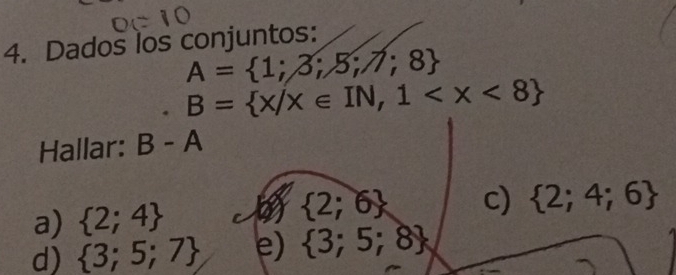 4. Dados los conjuntos:
A = {1; 3; 5; 7; 8}
B = {x/x ∈ IN, 1 < x < 8}
Hallar: B - A
a) {2; 4} b) {2; 6} c) {2; 4; 6}
d) {3; 5; 7} e) {3; 5; 8}